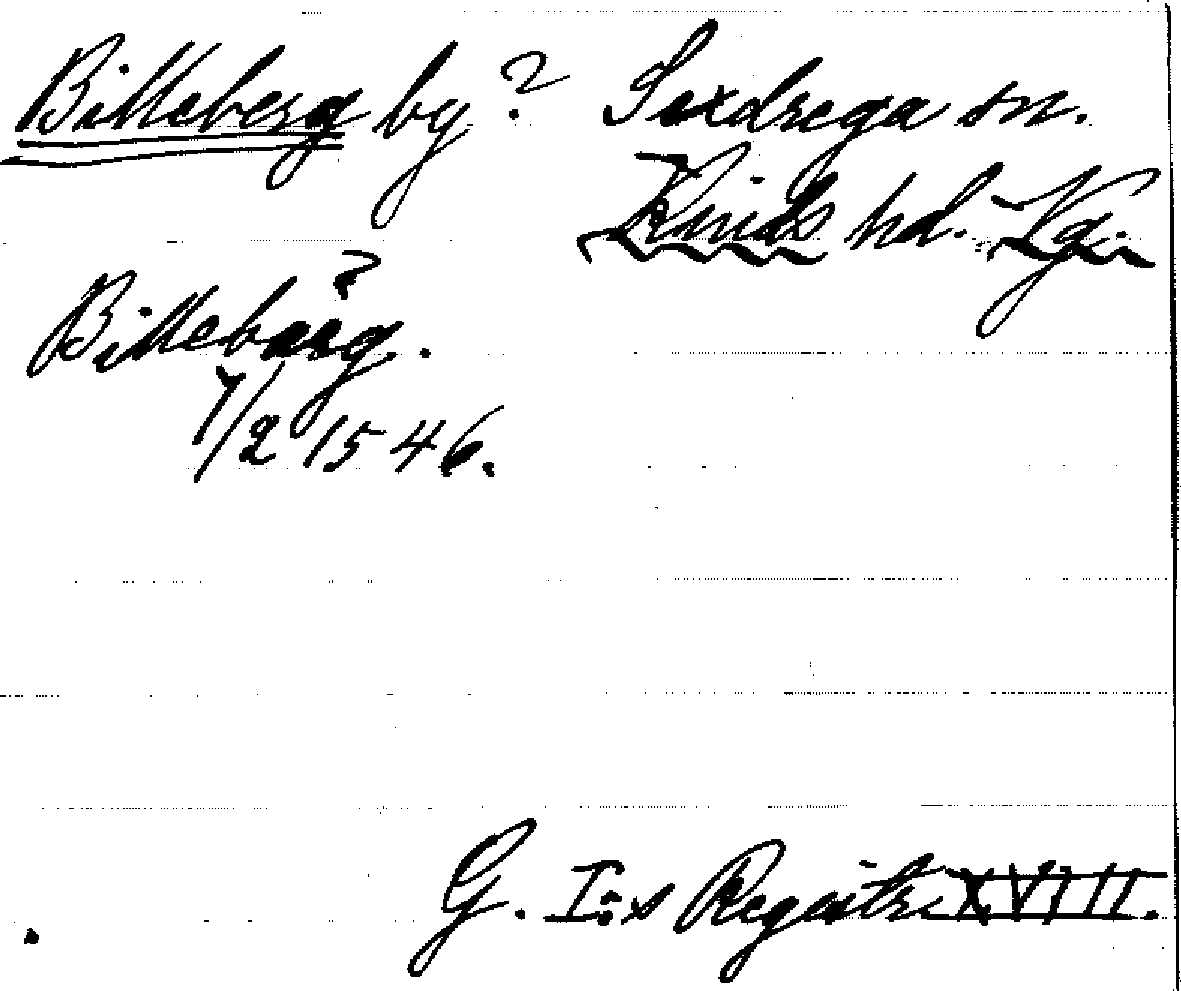 Billeberg by? Sexdrega sn.
Kinds hd. Vg.
?
Billebarg.
7/2 1546.
G. I:s Registr. XVIII.